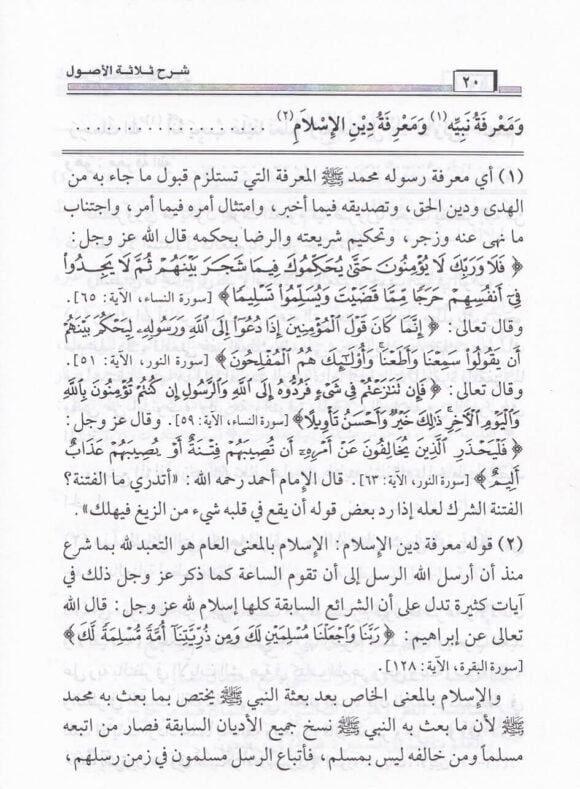 شرح ثلاثة الأصول
٢٠
وَمَعْرِفَةُ نَبِيِّه(١) وَمَعْرِفَةُ دِيْنِ الإِسْلَامِ(٢) . . . . . . . . . . . . . . . .
(١) أي معرفة رسوله محمد ﷺ المعرفة التي تستلزم قبول ما جاء به من
الهدى ودين الحق، وتصديقه فيما أخبر، وامتثال أمره فيما أمر، واجتناب
ما نهى عنه وزجر، وتحكيم شريعته والرضا بحكمه قال الله عز وجل:
﴿ فَلَا وَرَبِّكَ لَا يُؤْمِنُونَ حَتَّىٰ يُحَكِّمُوكَ فِيمَا شَجَرَ بَيْنَهُمْ ثُمَّ لَا يَجِدُوا
فِي أَنفُسِهِمْ حَرَجًا مِّمَّا قَضَيْتَ وَيُسَلِّمُوا تَسْلِيمًا ﴾ [سورة النساء، الآية: ٦٥].
وقال تعالى: ﴿ إِنَّمَا كَانَ قَوْلَ الْمُؤْمِنِينَ إِذَا دُعُوا إِلَى اللَّهِ وَرَسُولِهِ لِيَحْكُمَ بَيْنَهُمْ
أَن يَقُولُوا سَمِعْنَا وَأَطَعْنَا وَأُولَٰئِكَ هُمُ الْمُفْلِحُونَ ﴾ [سورة النور، الآية: ٥١].
وقال تعالى: ﴿ فَإِن تَنَازَعْتُمْ فِي شَيْءٍ فَرُدُّوهُ إِلَى اللَّهِ وَالرَّسُولِ إِن كُنتُمْ تُؤْمِنُونَ بِاللَّهِ
وَالْيَوْمِ الْآخِرِ ذَٰلِكَ خَيْرٌ وَأَحْسَنُ تَأْوِيلًا ﴾ [سورة النساء، الآية: ٥٩]. وقال عز وجل:
﴿ فَلْيَحْذَرِ الَّذِينَ يُخَالِفُونَ عَنْ أَمْرِهِ أَن تُصِيبَهُمْ فِتْنَةٌ أَوْ يُصِيبَهُمْ عَذَابٌ
أَلِيمٌ ﴾ [سورة النور، الآية: ٦٣]. قال الإمام أحمد رحمه الله: «أتدري ما الفتنة؟
الفتنة الشرك لعله إذا رد بعض قوله أن يقع في قلبه شيء من الزيغ فيهلك».
(٢) قوله معرفة دين الإسلام: الإسلام بالمعنى العام هو التعبد لله بما شرع
منذ أن أرسل الله الرسل إلى أن تقوم الساعة كما ذكر عز وجل ذلك في
آيات كثيرة تدل على أن الشرائع السابقة كلها إسلام لله عز وجل: قال الله
تعالى عن إبراهيم: ﴿ رَبَّنَا وَاجْعَلْنَا مُسْلِمَيْنِ لَكَ وَمِن ذُرِّيَّتِنَا أُمَّةً مُّسْلِمَةً لَّكَ ﴾
[سورة البقرة، الآية: ١٢٨].
والإسلام بالمعنى الخاص بعد بعثة النبي ﷺ يختص بما بعث به محمد
ﷺ لأن ما بعث به النبي ﷺ نسخ جميع الأديان السابقة فصار من اتبعه
مسلماً ومن خالفه ليس بمسلم، فأتباع الرسل مسلمون في زمن رسلهم،